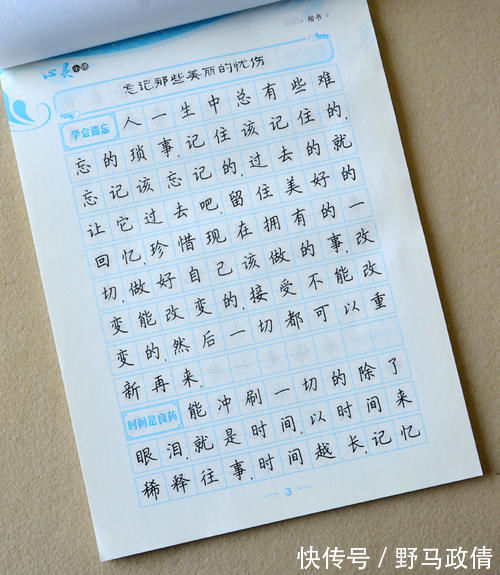 心灵小憩
楷书
忘记那些美丽的忧伤
学会遗忘
人一生中总有些难
忘的琐事,记住该记住的,
忘记该忘记的,过去的就
让它过去吧,留住美好的
回忆,珍惜现在拥有的一
切,做好自己该做的事,改
变能改变的,接受不能改
变的,然后一切都可以重
新再来.
时间是良药
能冲刷一切的除了
眼泪,就是时间,以时间来
稀释往事,时间越长,记忆
3
快传号/野马政倩